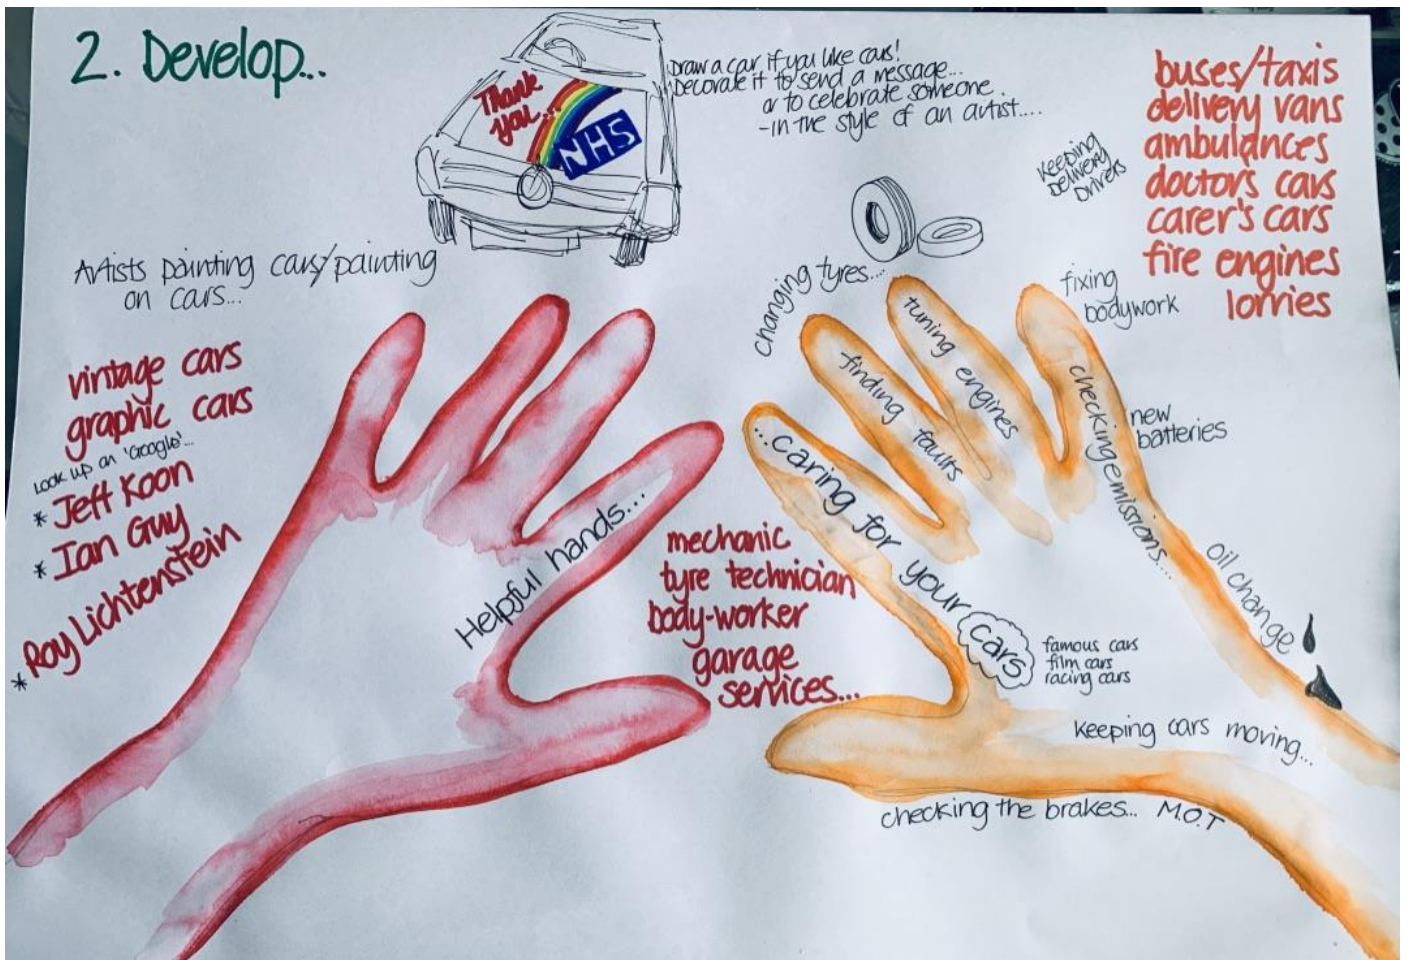 2. Develop...
Thank
you...
NHS
Draw a car if you like cars!
Decorate it to send a message...
or to celebrate someone.
-in the style of an artist....
buses/taxis
delivery vans
ambulances
doctor's cars
carer's cars
fire engines
lorries
Keeping
Delivery
Drivers
Artists painting cars/painting
on cars...
vintage cars
graphic cars
Look up on 'Google'...
* Jeff Koon
* Ian Guy
* Roy Lichtenstein
Helpful hands...
mechanic
tyre technician
body-worker
garage
services...
changing tyres...
fixing
bodywork
tuning engines
finding faults
...caring for your cars
checking emissions...
new
batteries
oil change
famous cars
film cars
racing cars
keeping cars moving...
checking the brakes... M.O.T